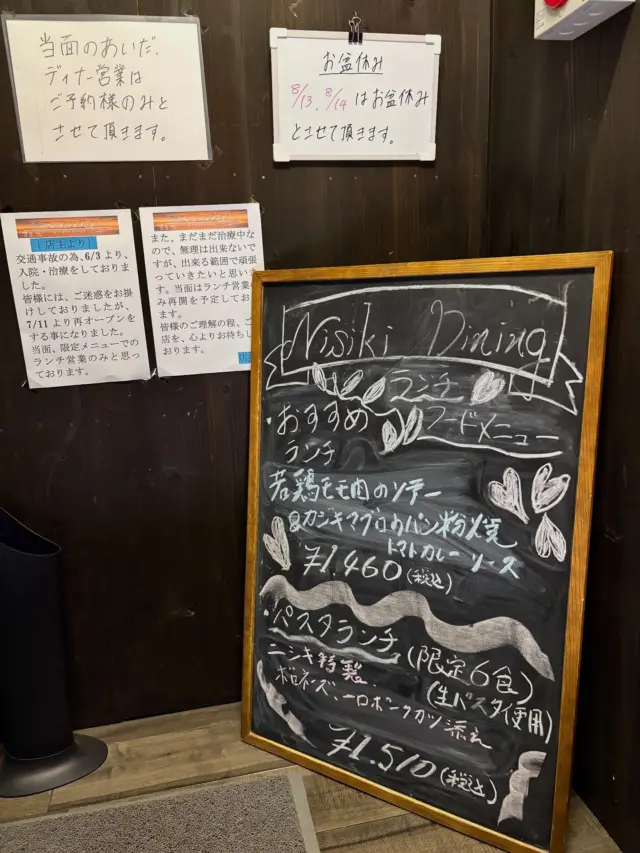 当面のあいだ、
ディナー営業は
ご予約様のみと
させて頂きます。
お盆休み
8/13、8/14 はお盆休み
とさせて頂きます。
(店主より)
交通事故の為、6/3より、
入院・治療をしておりま
した。
皆様には、ご迷惑をお掛
けしておりましたが、
7/11より再オープンを
する事になりました。
当面、限定メニューでの
ランチ営業のみと思っ
ております。
また、まだまだ治療中な
ので、無理は出来ないで
すが、出来る範囲で頑張
っていきたいと思いま
す。当面はランチ営業の
み再開を予定してお
ます。
皆様のご理解の程、ご
店を、心よりお待ちし
おります。
Nisiki Dining
ランチ
フードメニュー
・おすすめ
ランチ
若鶏モモ肉のソテー
&カジキマグロのパン粉焼
トマトカレーソース
¥1.460(税込)
・パスタランチ(限定6食)
ニシキ特製(生パスタ使用)
ボロネーズ、一口ポークカツ添え
¥1.510(税込)